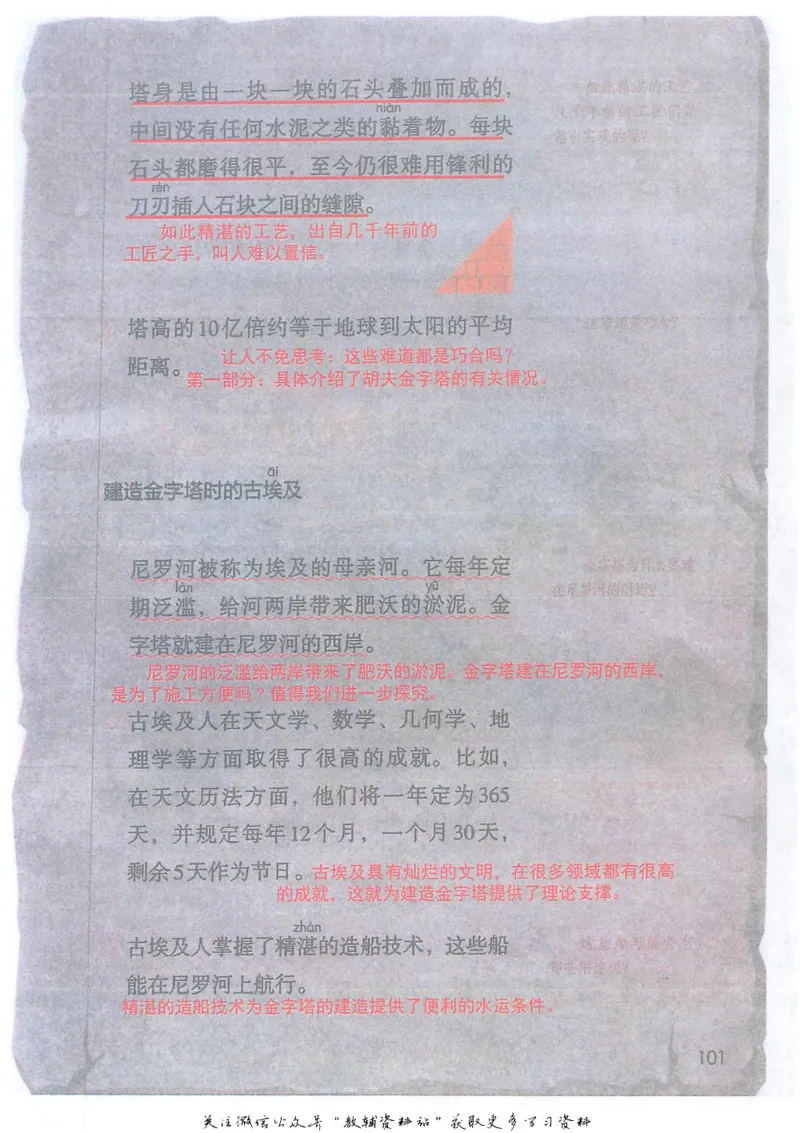 塔身是由一块一块的石头叠加而成的，
nián
中间没有任何水泥之类的黏着物。每块
石头都磨得很平，至今仍很难用锋利的
rèn
刀刃插入石块之间的缝隙。
如此精湛的工艺，出自几千年前的
工匠之手，叫人难以置信。
塔高的10亿倍约等于地球到太阳的平均
距离。
让人不免思考：这些难道都是巧合吗？
第一部分：具体介绍了胡夫金字塔的有关情况。
āi
建造金字塔时的古埃及
尼罗河被称为埃及的母亲河。它每年定
làn
yū
期泛滥，给河两岸带来肥沃的淤泥。金
字塔就建在尼罗河的西岸。
尼罗河的泛滥给两岸带来了肥沃的淤泥。金字塔建在尼罗河的西岸，
是为了施工方便吗？值得我们进一步探究。
古埃及人在天文学、数学、几何学、地
理学等方面取得了很高的成就。比如，
在天文历法方面，他们将一年定为365
天，并规定每年12个月，一个月30天，
剩余5天作为节日。古埃及具有灿烂的文明，在很多领域都有很高
的成就，这就为建造金字塔提供了理论支撑。
zhàn
古埃及人掌握了精湛的造船技术，这些船
能在尼罗河上航行。
精湛的造船技术为金字塔的建造提供了便利的水运条件。
如此精湛的工艺，
几千年前的工匠们是
怎么实现的呢？
金字塔为什么要建
在尼罗河的附近？
101
关注微信公众号“教辅资料站”获取更多学习资料